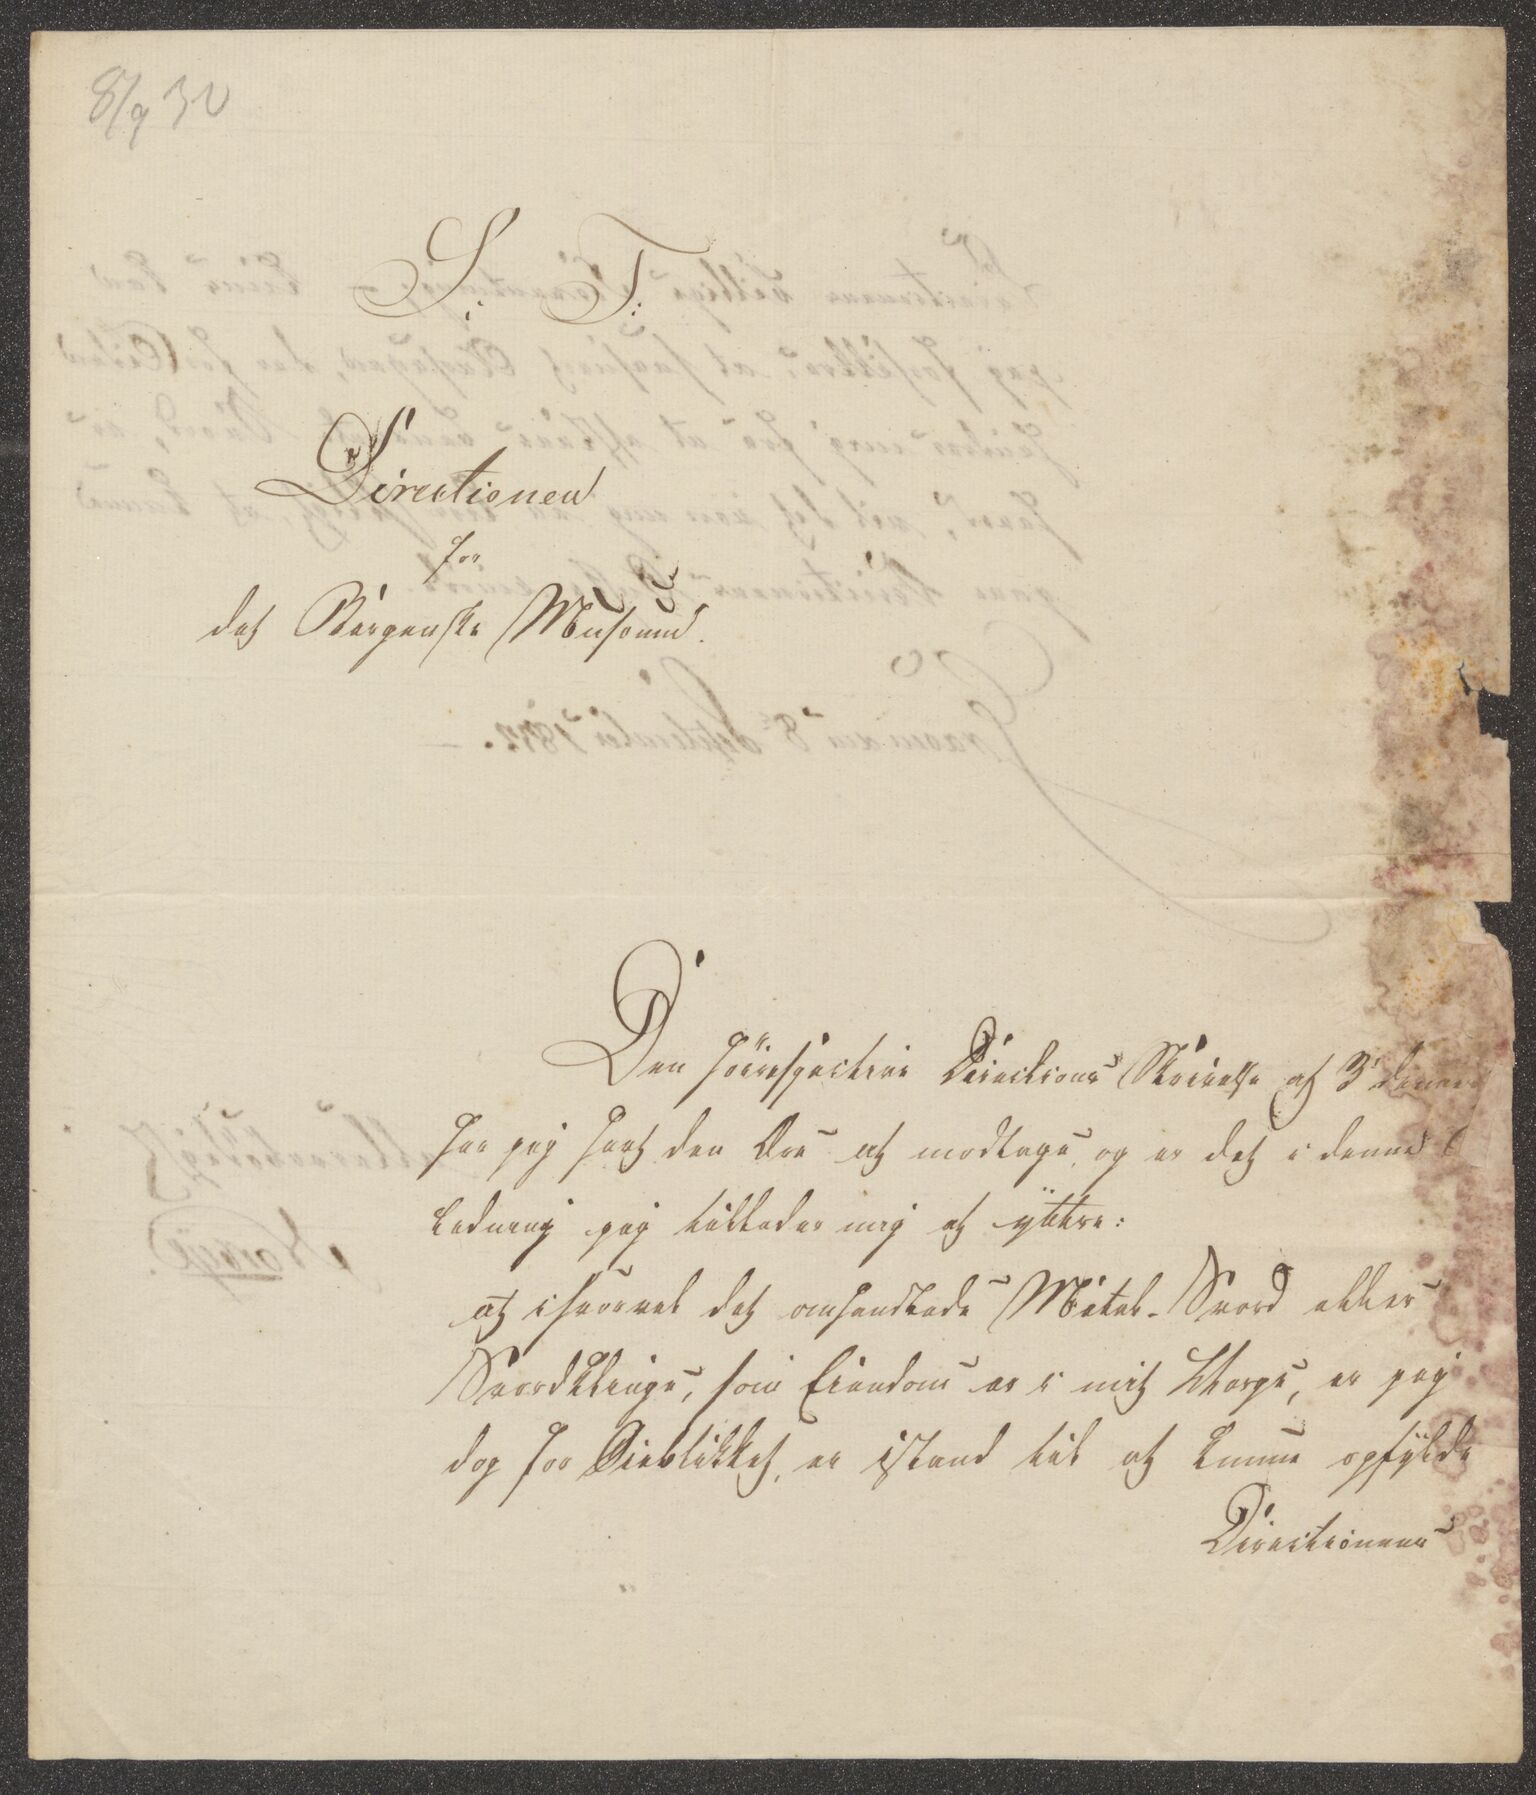 8/9 32
S. T:
Directionen
for
det Bergenske Museum.
Den høirespective Directions Skrivelse af 3die dennes
har jeg havt den Ære at modtage, og er det i denne
Ledning jeg tillader mig at ÿttre:
at ihvorvel det omhandlede Metal-Sverd eller
Sverdklinge, som Eiendom er i mit Værge, er jeg
dog for Øieblikket, ei istand til at kunne opfÿlde
Directionens